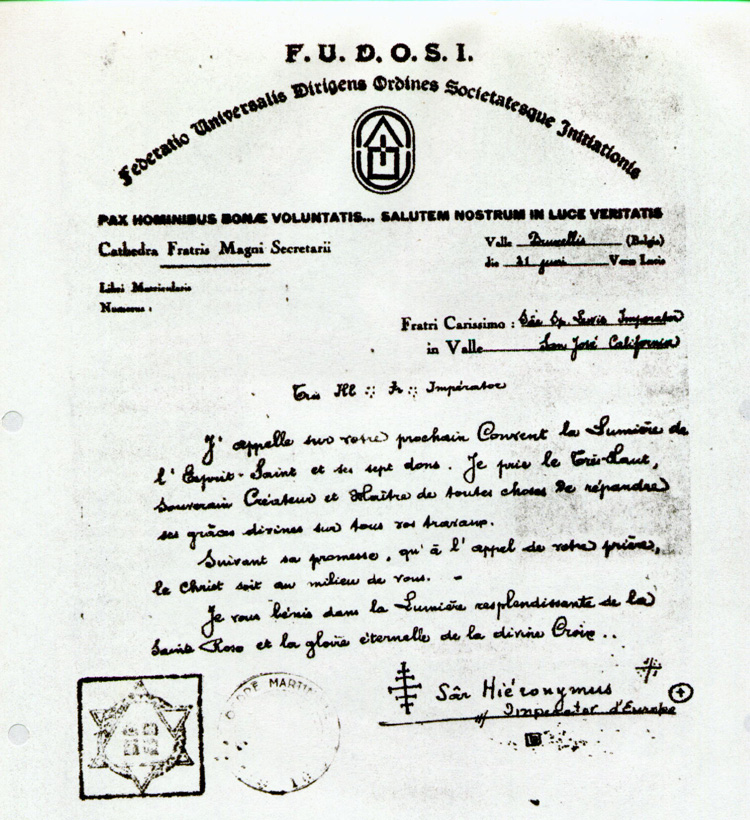 F. U. D. O. S. I.
Federatio Universalis Dirigens Ordines Societatesque Initiationis
PAX HOMINIBUS BONÆ VOLUNTATIS... SALUTEM NOSTRUM IN LUCE VERITATIS
Cathedra Fratris Magni Secretarii
Valle Bruxellis (Belgia)
die 21 juni Vera Lucis
Libri Matricularis
Numerus :
Fratri Carissimo : Sâr Sp. Lewis Imperator
in Valle San José California
Très Ill ∴ Fr ∴ Impérator
J'appelle sur votre prochain Convent la Lumière de
l'Esprit-Saint et ses sept dons. Je prie le Très-Haut,
Souverain Créateur et Maître de toutes choses de répandre
ses grâces divines sur tous vos travaux.
Suivant sa promesse, qu'à l'appel de votre prière,
le Christ soit au milieu de vous. -
Je vous bénis dans la Lumière resplendissante de la
Sainte Rose et la gloire éternelle de la divine Croix..
Sâr Hiéronymus
Imperator d'Europe
ORDRE MARTIN